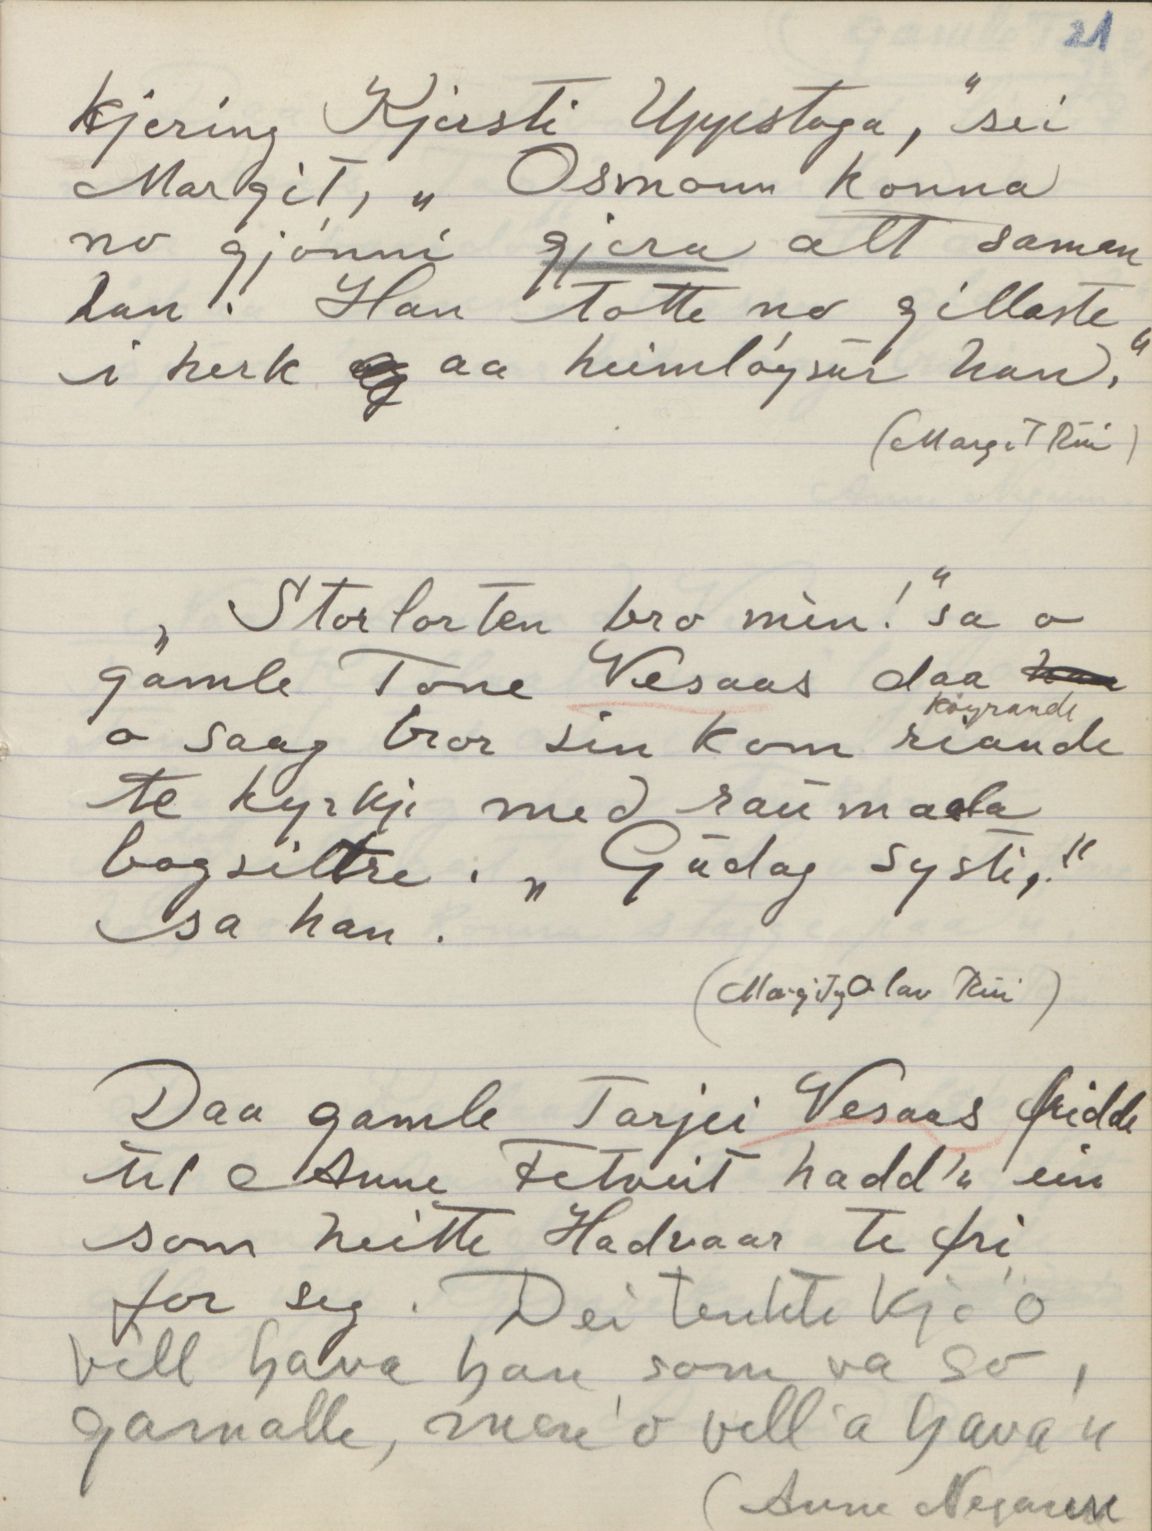 21
kjering Kjersti Uppestoga," sei
Margit, „ Osmonn konna
no gjónni gjera alt saman
han. Han totte no gillaste
i herk aa heimlóysur han."
(Margit Rui)
„Storlorten bro min!" sa o
gamle Tone Vesaas daa han
köyrande
o saag bror sin kom riande
te kyrkje med raumaala
bogsiltre. „Gudag systi,!"
sa han.
(Margit og Olav Rui)
Daa gamle Tarjei Vesaas fridde
til Anne Fetveit hadd'n ein
som heitte Hadvaar te fri
for seg. Dei tenkte kje'o
vill hava han som va so,
gamalle, men'o vell'a hava'n
(Anne